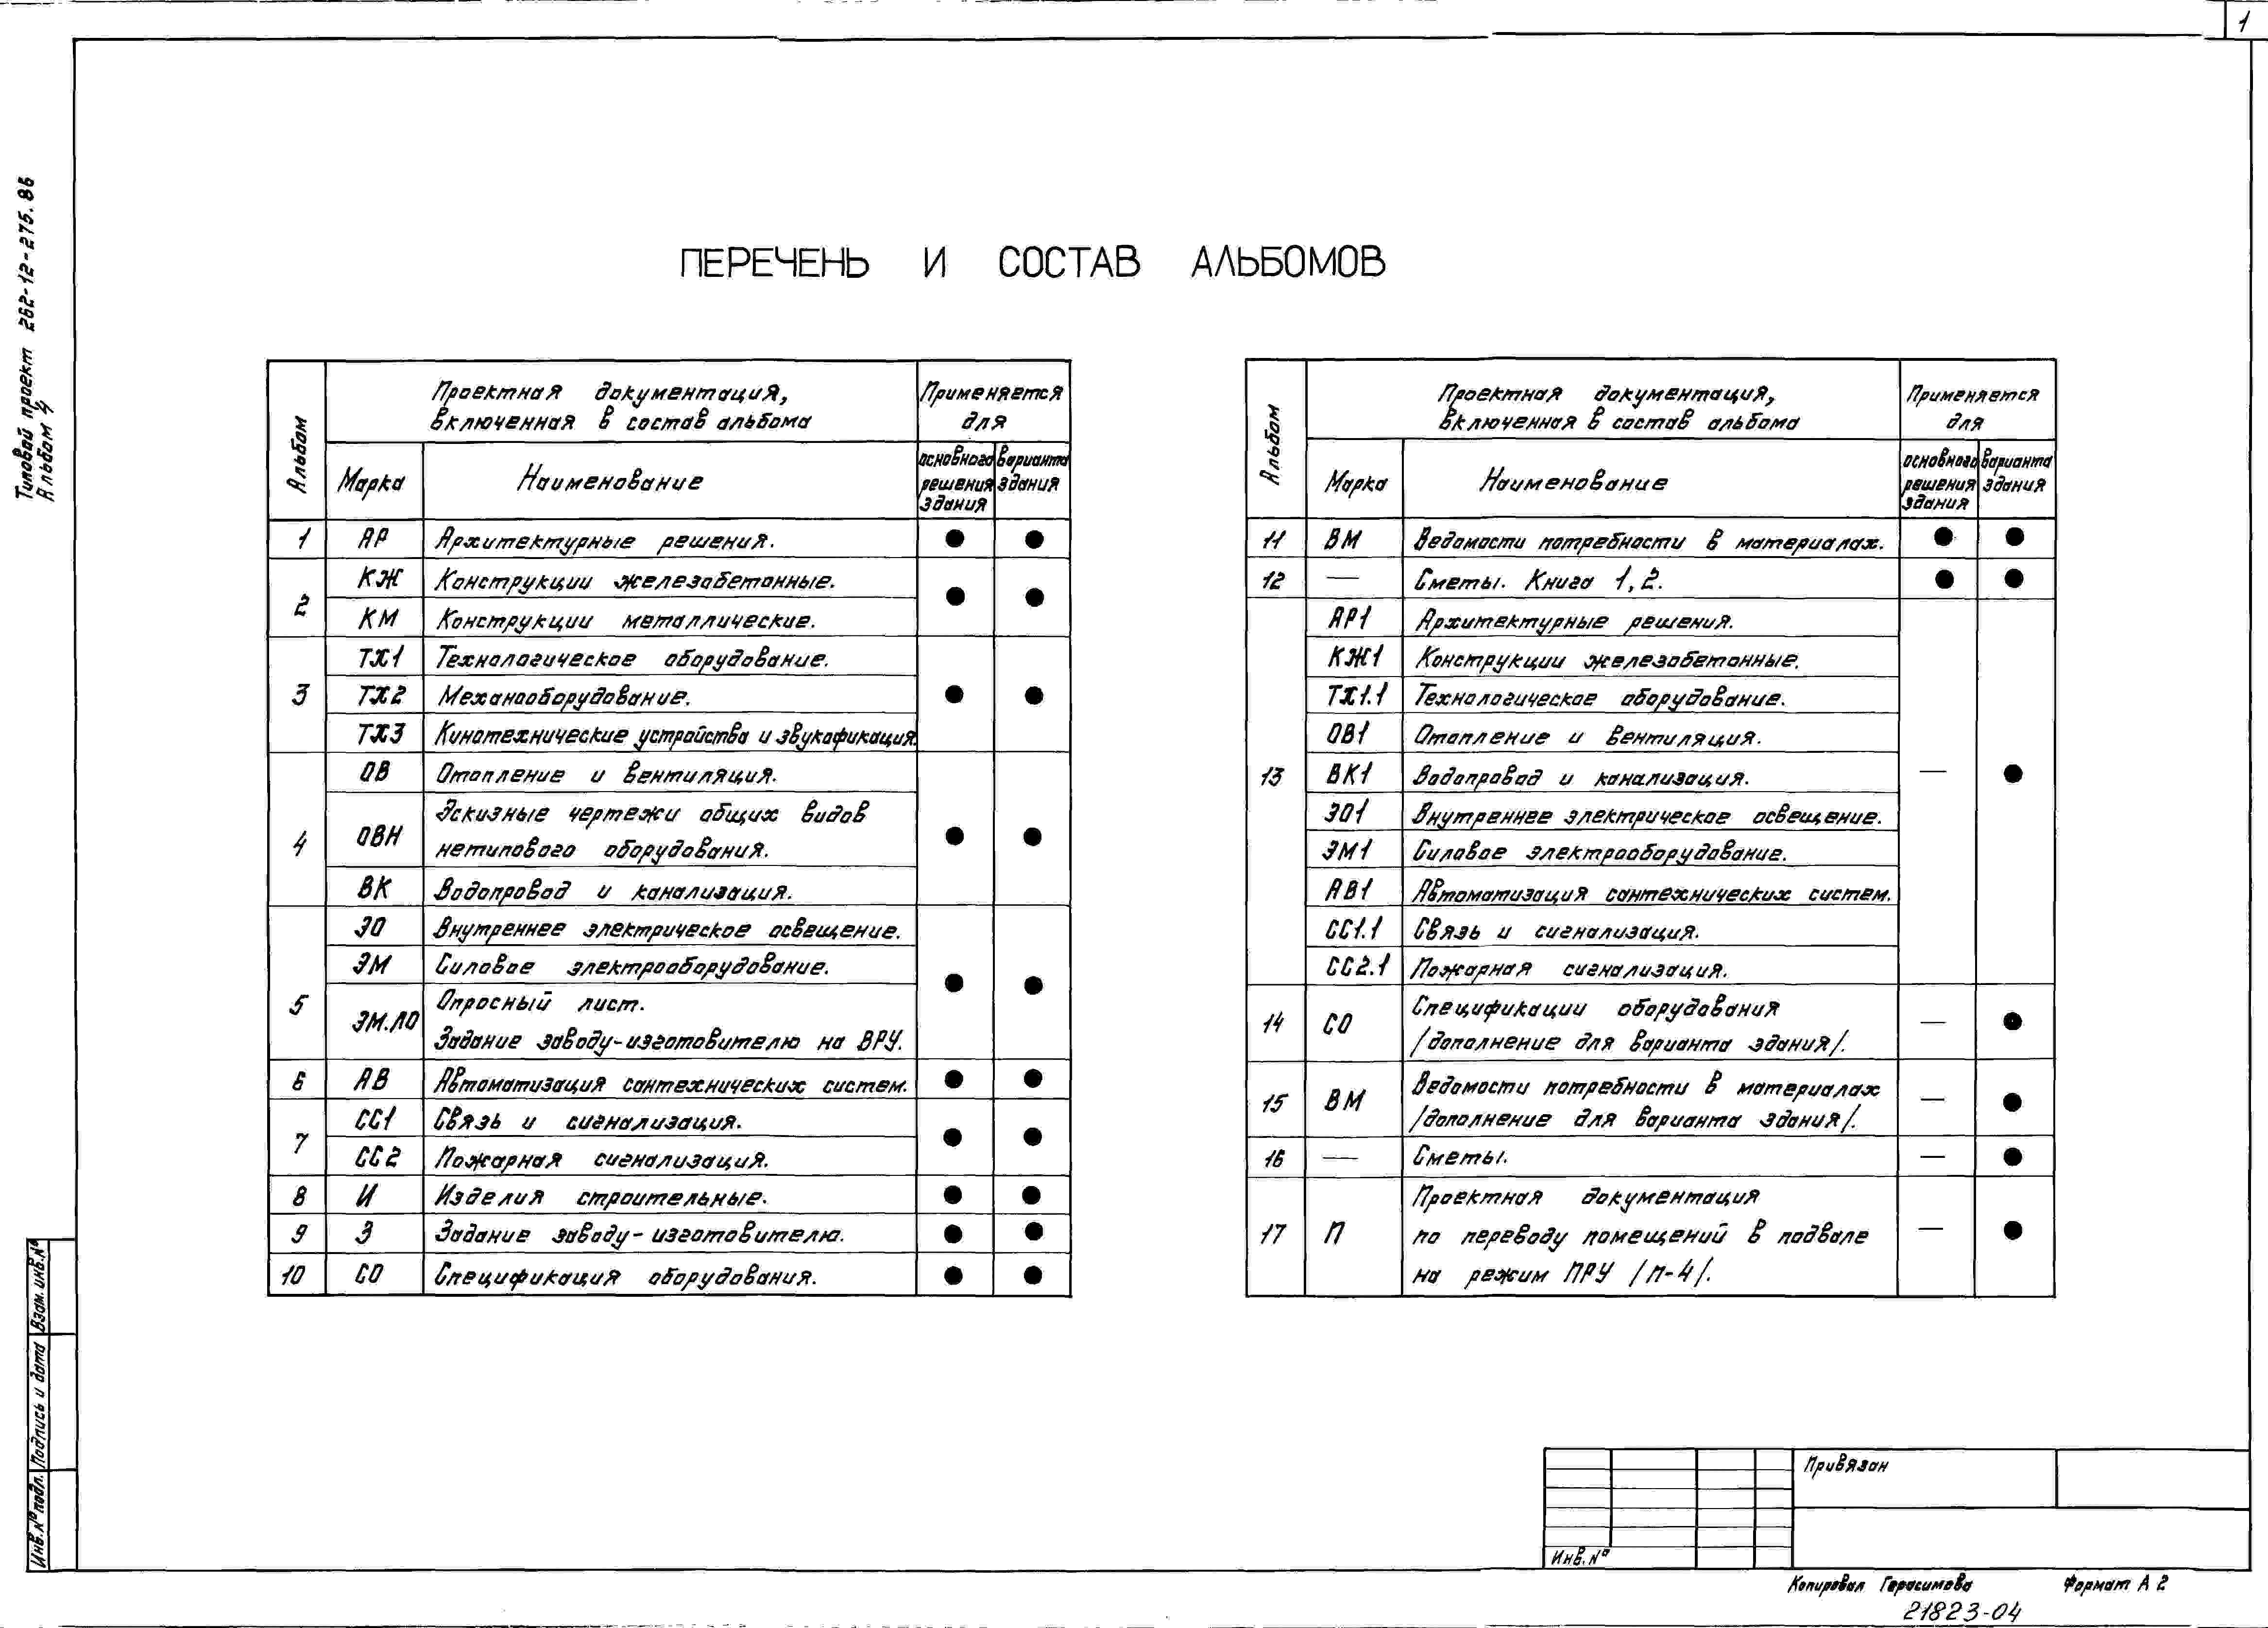 1
Типовой проект 262-12-275.86
Альбом 4
ПЕРЕЧЕНЬ И СОСТАВ АЛЬБОМОВ
Альбом
Проектная документация,
включенная в состав альбома
Применяется
для
Марка
Наименование
основного
решения
здания
варианта
здания
1 АР Архитектурные решения. ● ●
2 КЖ Конструкции железобетонные. ● ●
КМ Конструкции металлические.
3 ТХ1 Технологическое оборудование. ● ●
ТХ2 Механооборудование.
ТХ3 Кинотехнические устройства и звукофикация.
4 ОВ Отопление и вентиляция. ● ●
ОВН Эскизные чертежи общих видов
нетипового оборудования.
ВК Водопровод и канализация.
5 ЭО Внутреннее электрическое освещение. ● ●
ЭМ Силовое электрооборудование.
ЭМ.ЛО Опросный лист.
Задание заводу-изготовителю на ВРУ.
6 АВ Автоматизация сантехнических систем. ● ●
7 СС1 Связь и сигнализация. ● ●
СС2 Пожарная сигнализация.
8 И Изделия строительные. ● ●
9 З Задание заводу-изготовителю. ● ●
10 СО Спецификация оборудования. ● ●
Альбом
Проектная документация,
включенная в состав альбома
Применяется
для
Марка
Наименование
основного
решения
здания
варианта
здания
11 ВМ Ведомости потребности в материалах. ● ●
12 — Сметы. Книга 1,2. ● ●
13 АР1 Архитектурные решения. — ●
КЖ1 Конструкции железобетонные.
ТХ1.1 Технологическое оборудование.
ОВ1 Отопление и вентиляция.
ВК1 Водопровод и канализация.
ЭО1 Внутреннее электрическое освещение.
ЭМ1 Силовое электрооборудование.
АВ1 Автоматизация сантехнических систем.
СС1.1 Связь и сигнализация.
СС2.1 Пожарная сигнализация.
14 СО Спецификации оборудования — ●
/дополнение для варианта здания/.
15 ВМ Ведомости потребности в материалах — ●
/дополнение для варианта здания/.
16 — Сметы. — ●
17 П Проектная документация — ●
по переводу помещений в подвале
на режим ПРУ /П-4/.
Взам. инв.№
Подпись и дата
Инв.№ подл.
Привязан
Инв.№
Копировал Герасимова Формат А2
21823-04